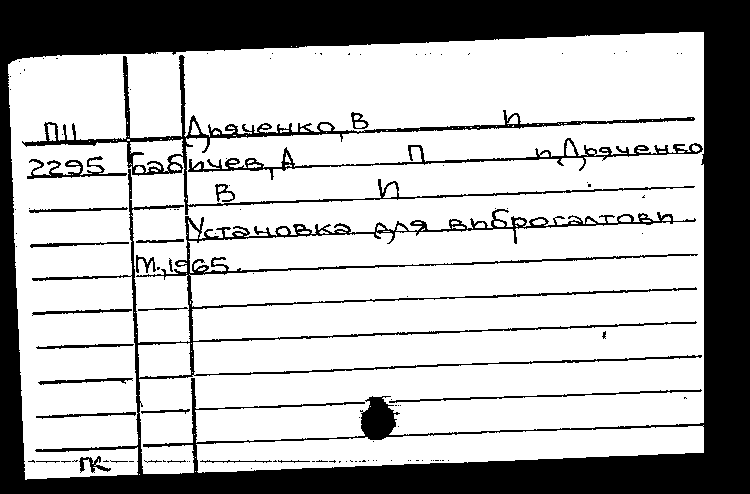 ПЦ Дьяченко, В И
2295 Бабичев, А П и Дьяченко,
В И
Установка для виброгалтовки
М., 1965.
ПК